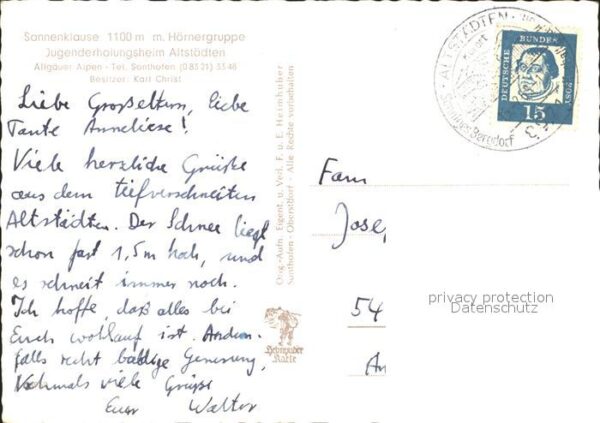 Sonnenklause 1100 m m. Hörnergruppe
Jugenderholungsheim Altstädten
Allgäuer Alpen - Tel. Sonthofen (08321) 3348
Besitzer: Karl Christ
Liebe Großeltern, liebe
Tante Anneliese!
Viele herzliche Grüße
aus dem tiefverschneiten
Altstädten. Der Schnee liegt
schon fast 1,5m hoch, und
es schneit immer noch.
Ich hoffe, daß alles bei
Euch wohlauf ist. Andern-
falls recht baldige Genesung,
Nochmals viele Grüße
Euer Walter
Orig.-Aufn. Eigent. u. Verl. F. u. E. Heimhuber
Sonthofen - Oberstdorf - Alle Rechte vorbehalten
Heimhuber
Karte
ALTSTÄDTEN
DEUTSCHE BUNDESPOST
15
Fam
Jose,
54
An
privacy protection
Datenschutz